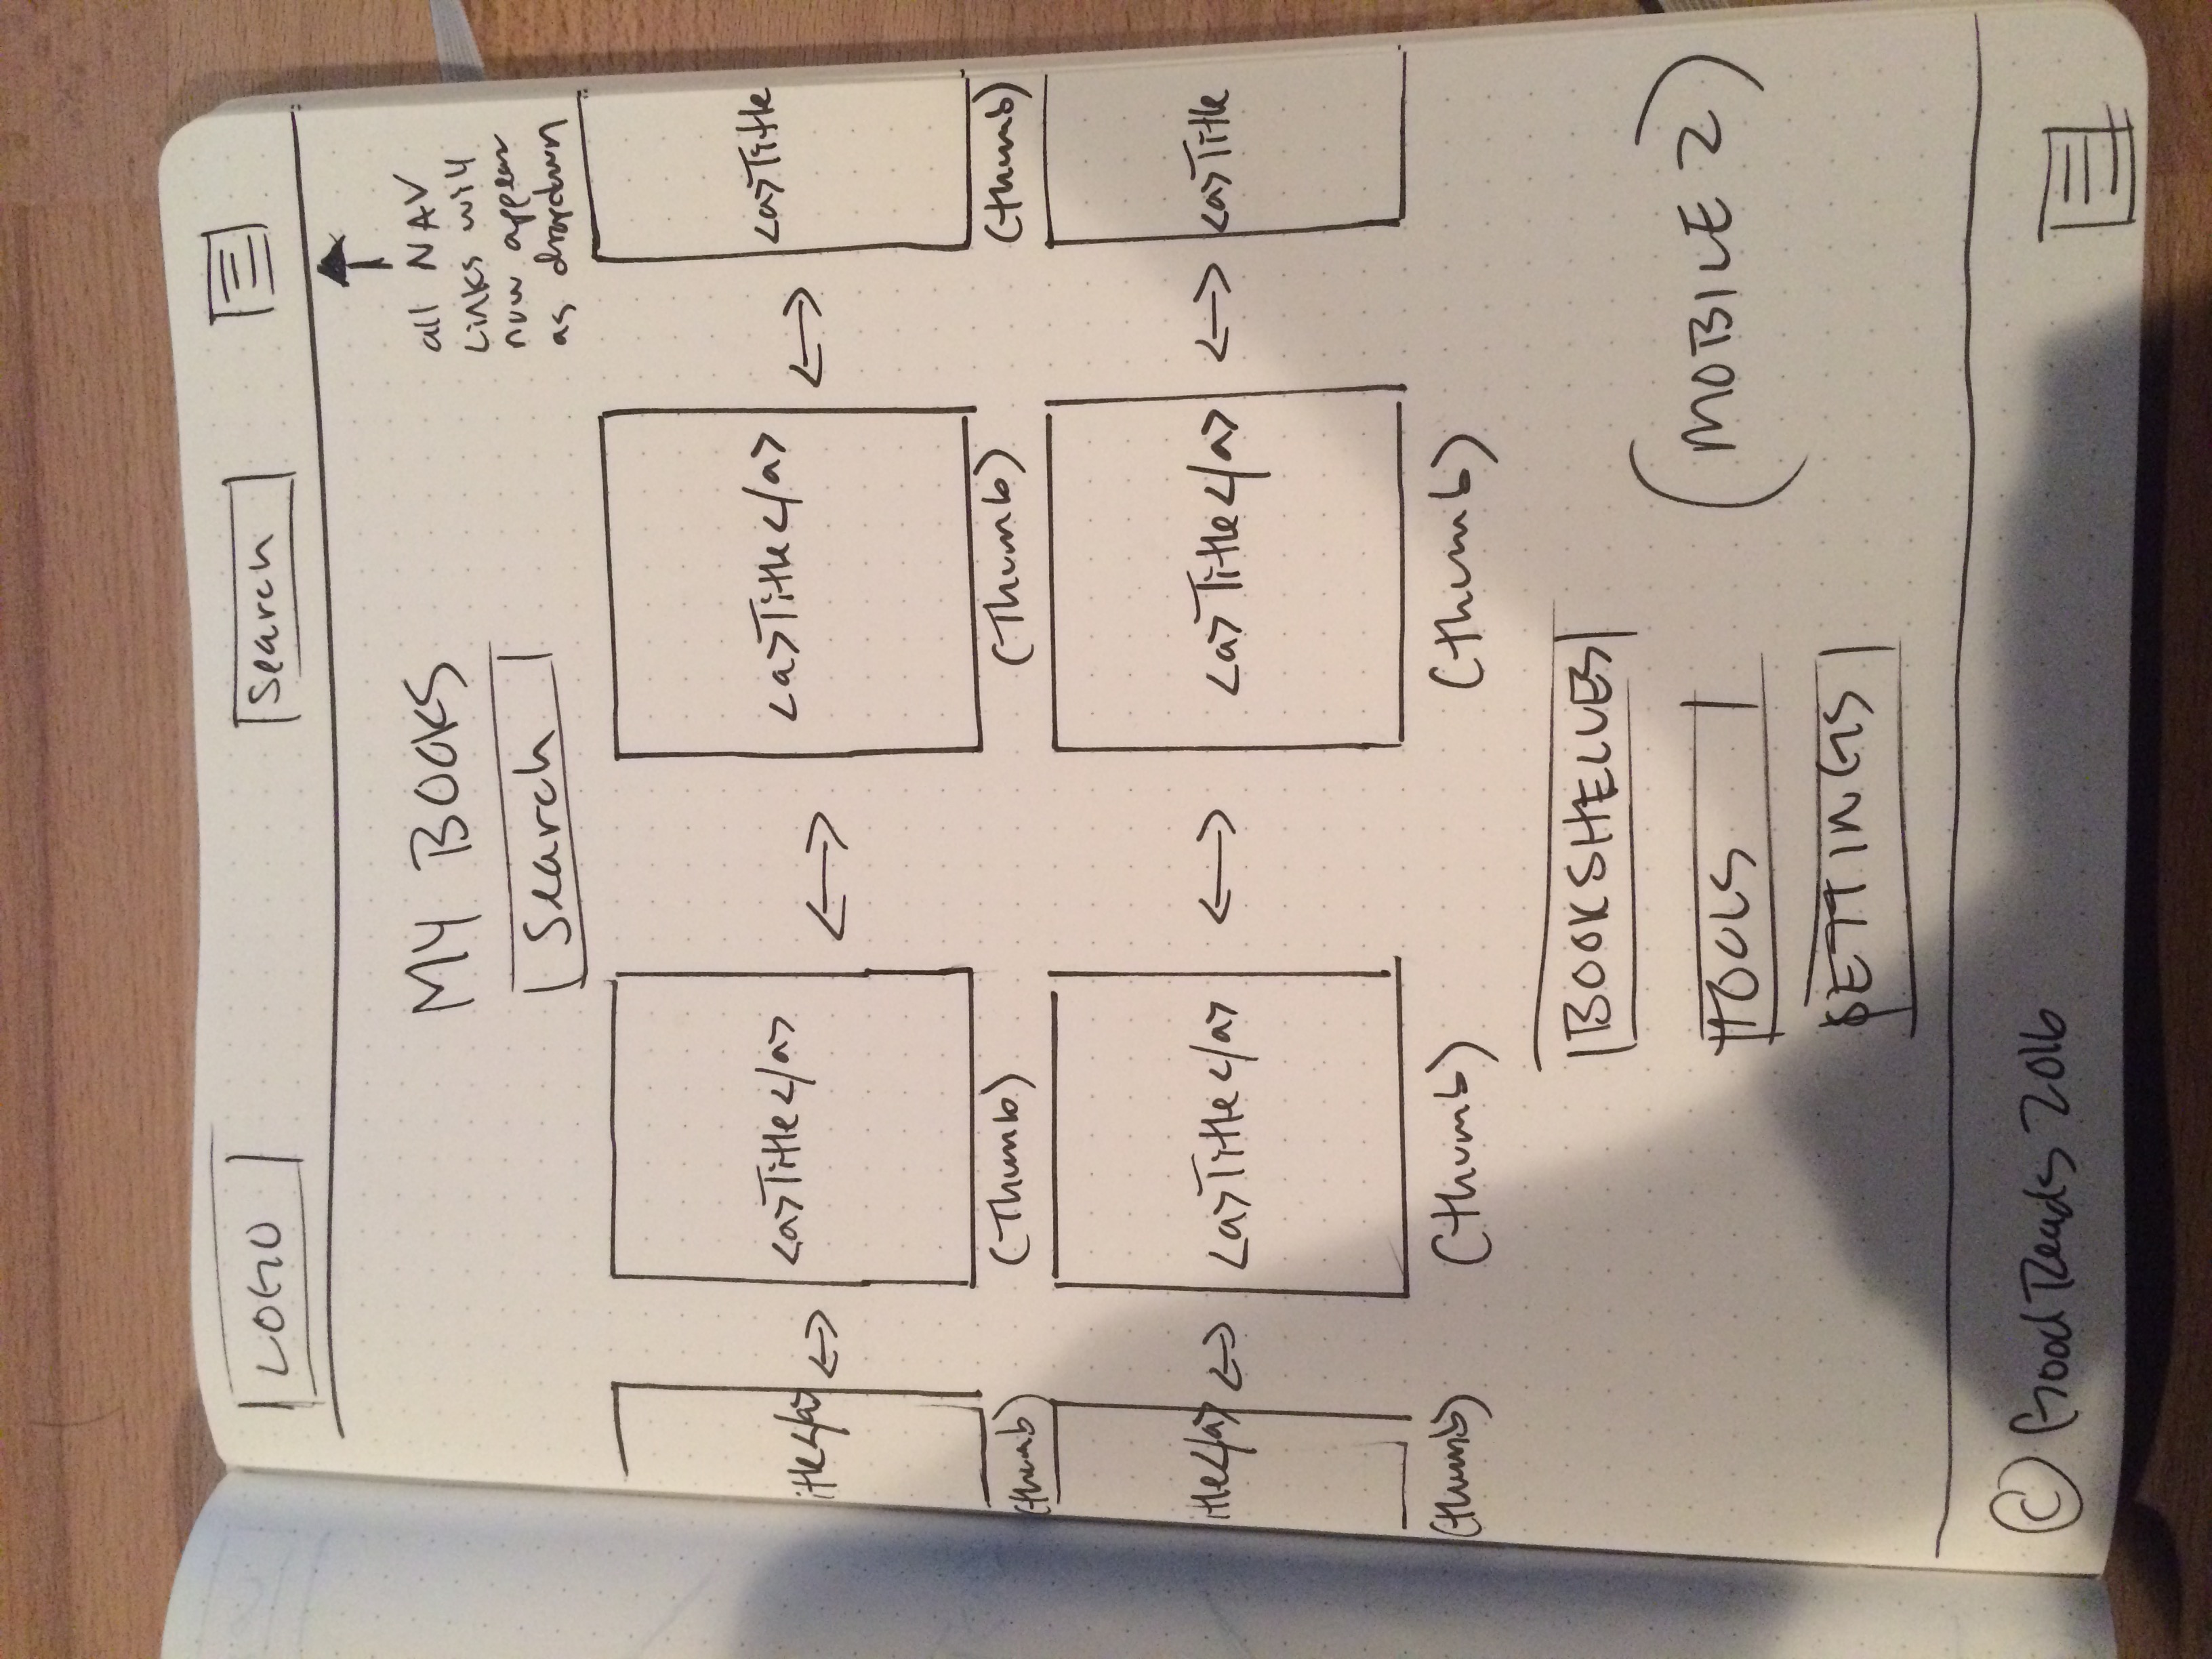 LOGO
Search
all NAV
Links will
now appear
as dropdown
MY BOOKS
Search
itle</a>
<a>Title</a>
<a>Title</a>
<a>Title
(thumb)
(Thumb)
(Thumb)
(thumb)
itle</a>
<a>Title</a>
<a>Title</a>
<a>Title
(thumb)
(thumb)
(thumb)
BOOKSHELVES
TOOLS
SETTINGS
(MOBILE 2)
© GoodReads 2016